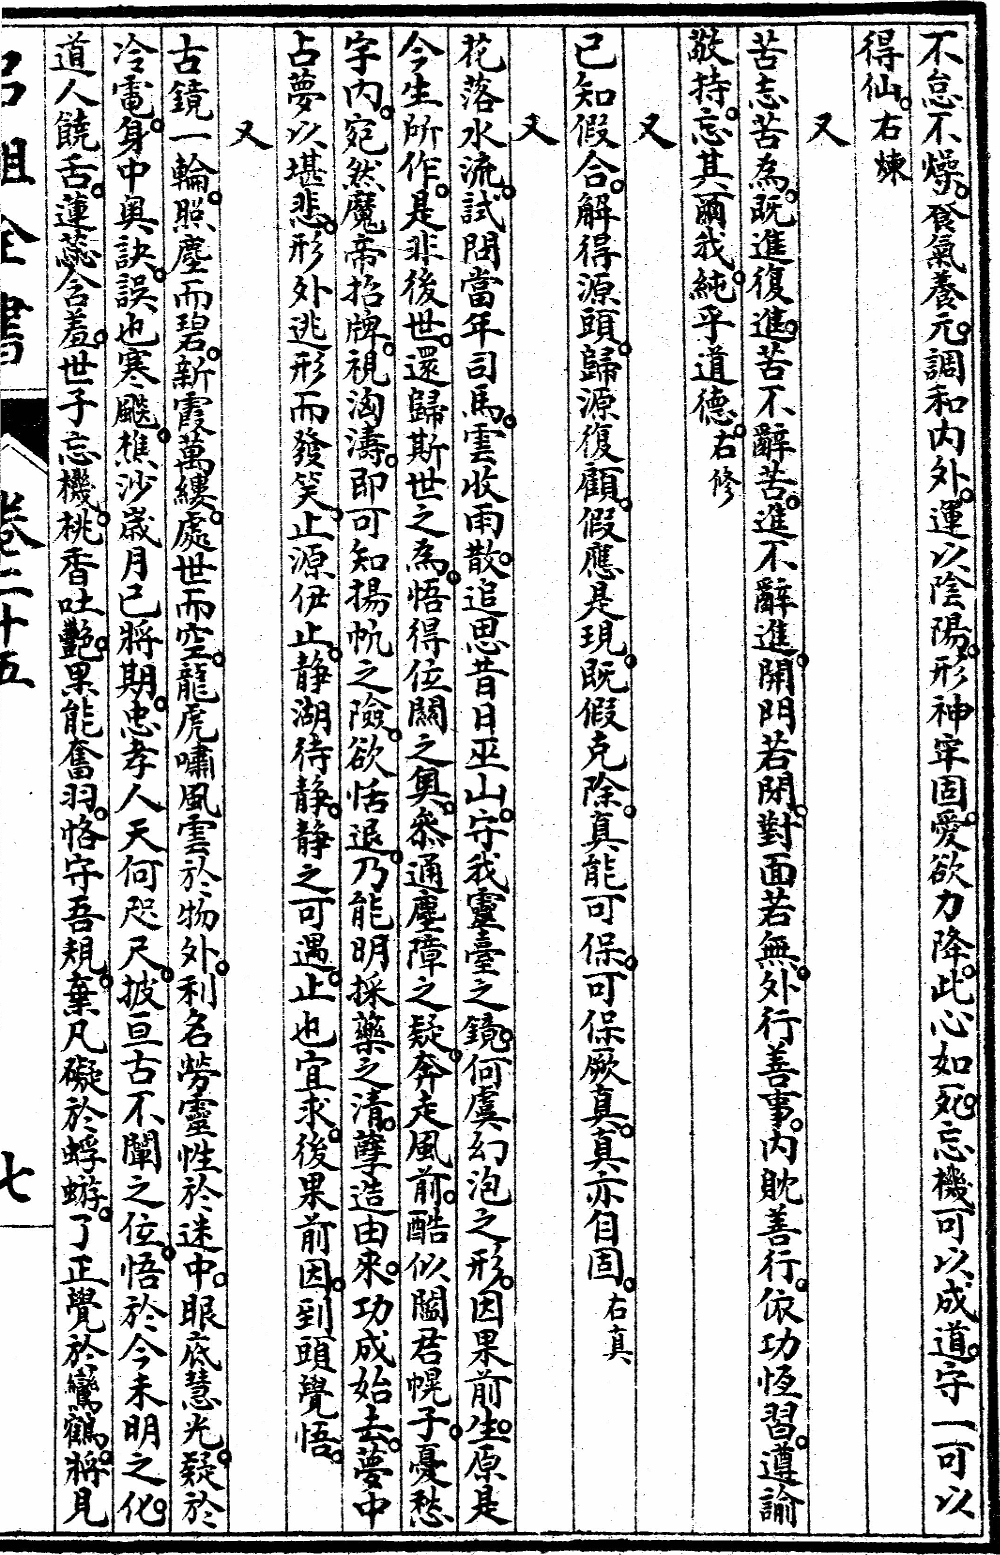 不怠不燥。餐氣養元。調和内外。運以陰陽。形神牢固。愛欲力降。此心如死。忘機可以成道。守一可以
得仙。右煉
又
苦志苦為。既進復進。苦不辭苦。進不辭進。開門若閉。對面若無。外行善事。内躭善行。依功恆習。遵諭
敬持。忘其爾我。純乎道德。右修
又
已知假合。解得源頭。歸源復顧。假應是現。既假克除。真能可保。可保厥真。真亦自固。右真
又
花落水流。試問當年司馬。雲收雨散。追思昔日巫山。守我靈臺之鏡。何虞幻泡之形。因果前生。原是
今生所作。是非後世。還歸斯世之為。悟得位關之奥。叅通塵障之疑。奔走風前。酷似闔君幌子。憂愁
字内。宛然魔帝招牌。視洶濤。即可知揚帆之險。欲恬退。乃能明採藥之清。孽造由來。功成始去。夢中
占夢以堪悲。形外逃形而發笑。止源伊止。静湖待静。静之可遇。止也宜求。後果前因。到頭覺悟。
又
古鏡一輪。照塵而碧。新霞萬縷。處世而空。龍虎嘯風雲於物外。利名勞靈性於迷中。眼底慧光。疑於
冷電。身中奥訣。誤也寒颷。樵沙歲月已將期。忠孝人天何咫尺。披亘古不闡之位。悟於今未明之化。
道人饒舌。蓮蕊含羞。世子忘機。桃香吐艷。果能奮羽。恪守吾規。棄凡礙於蜉蝣。了正覺於鸞鶴。將見
呂祖全書
卷二十五
七